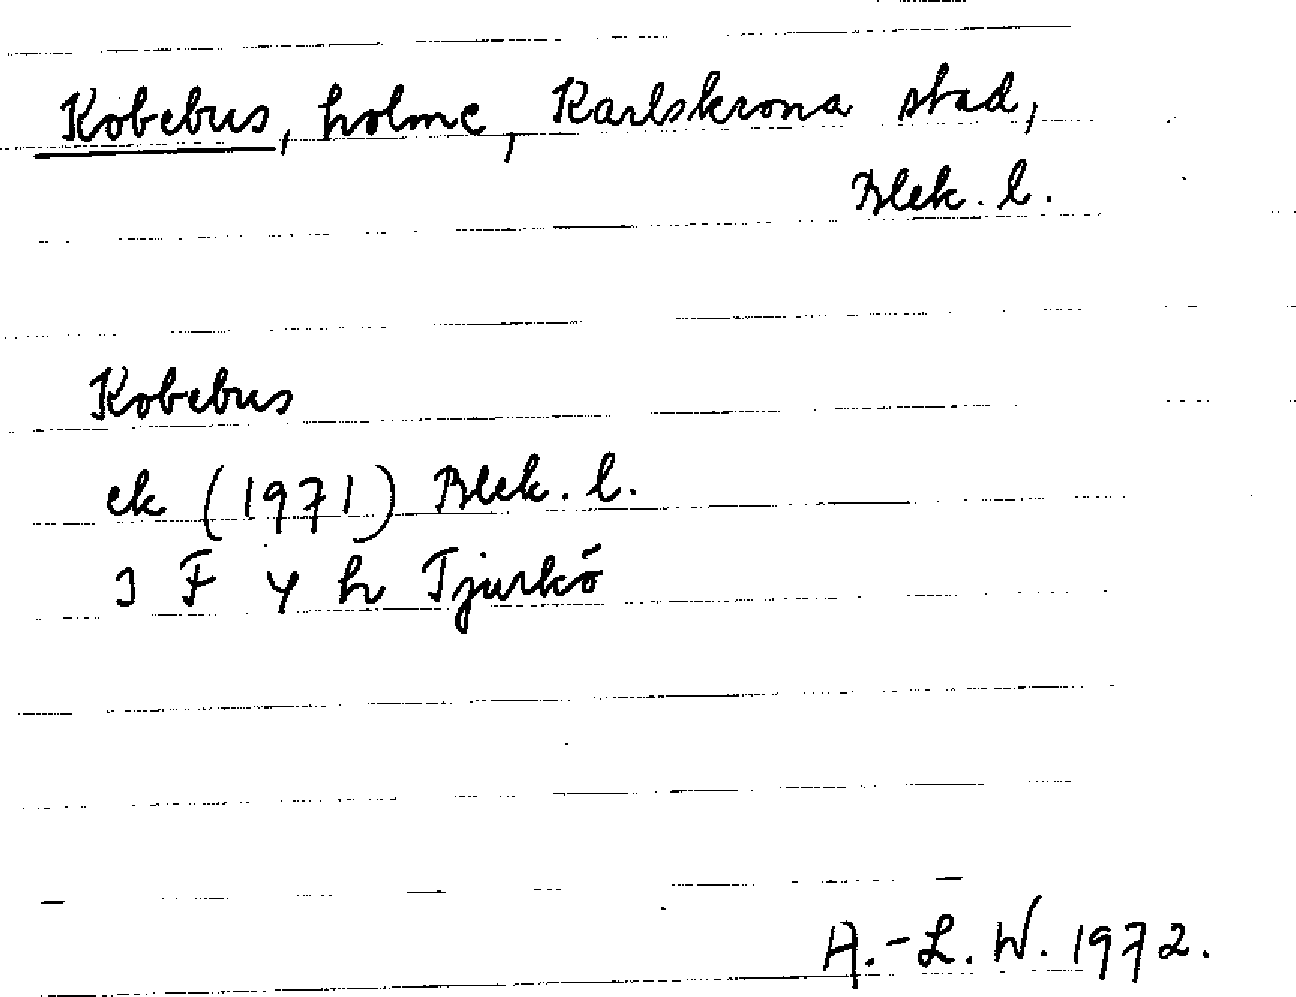 Kobebus, holme, Karlskrona stad,
Blek. l.
Kobebus
ek (1971) Blek. l.
3 F y h Tjurkö
A.-L. W. 1972.